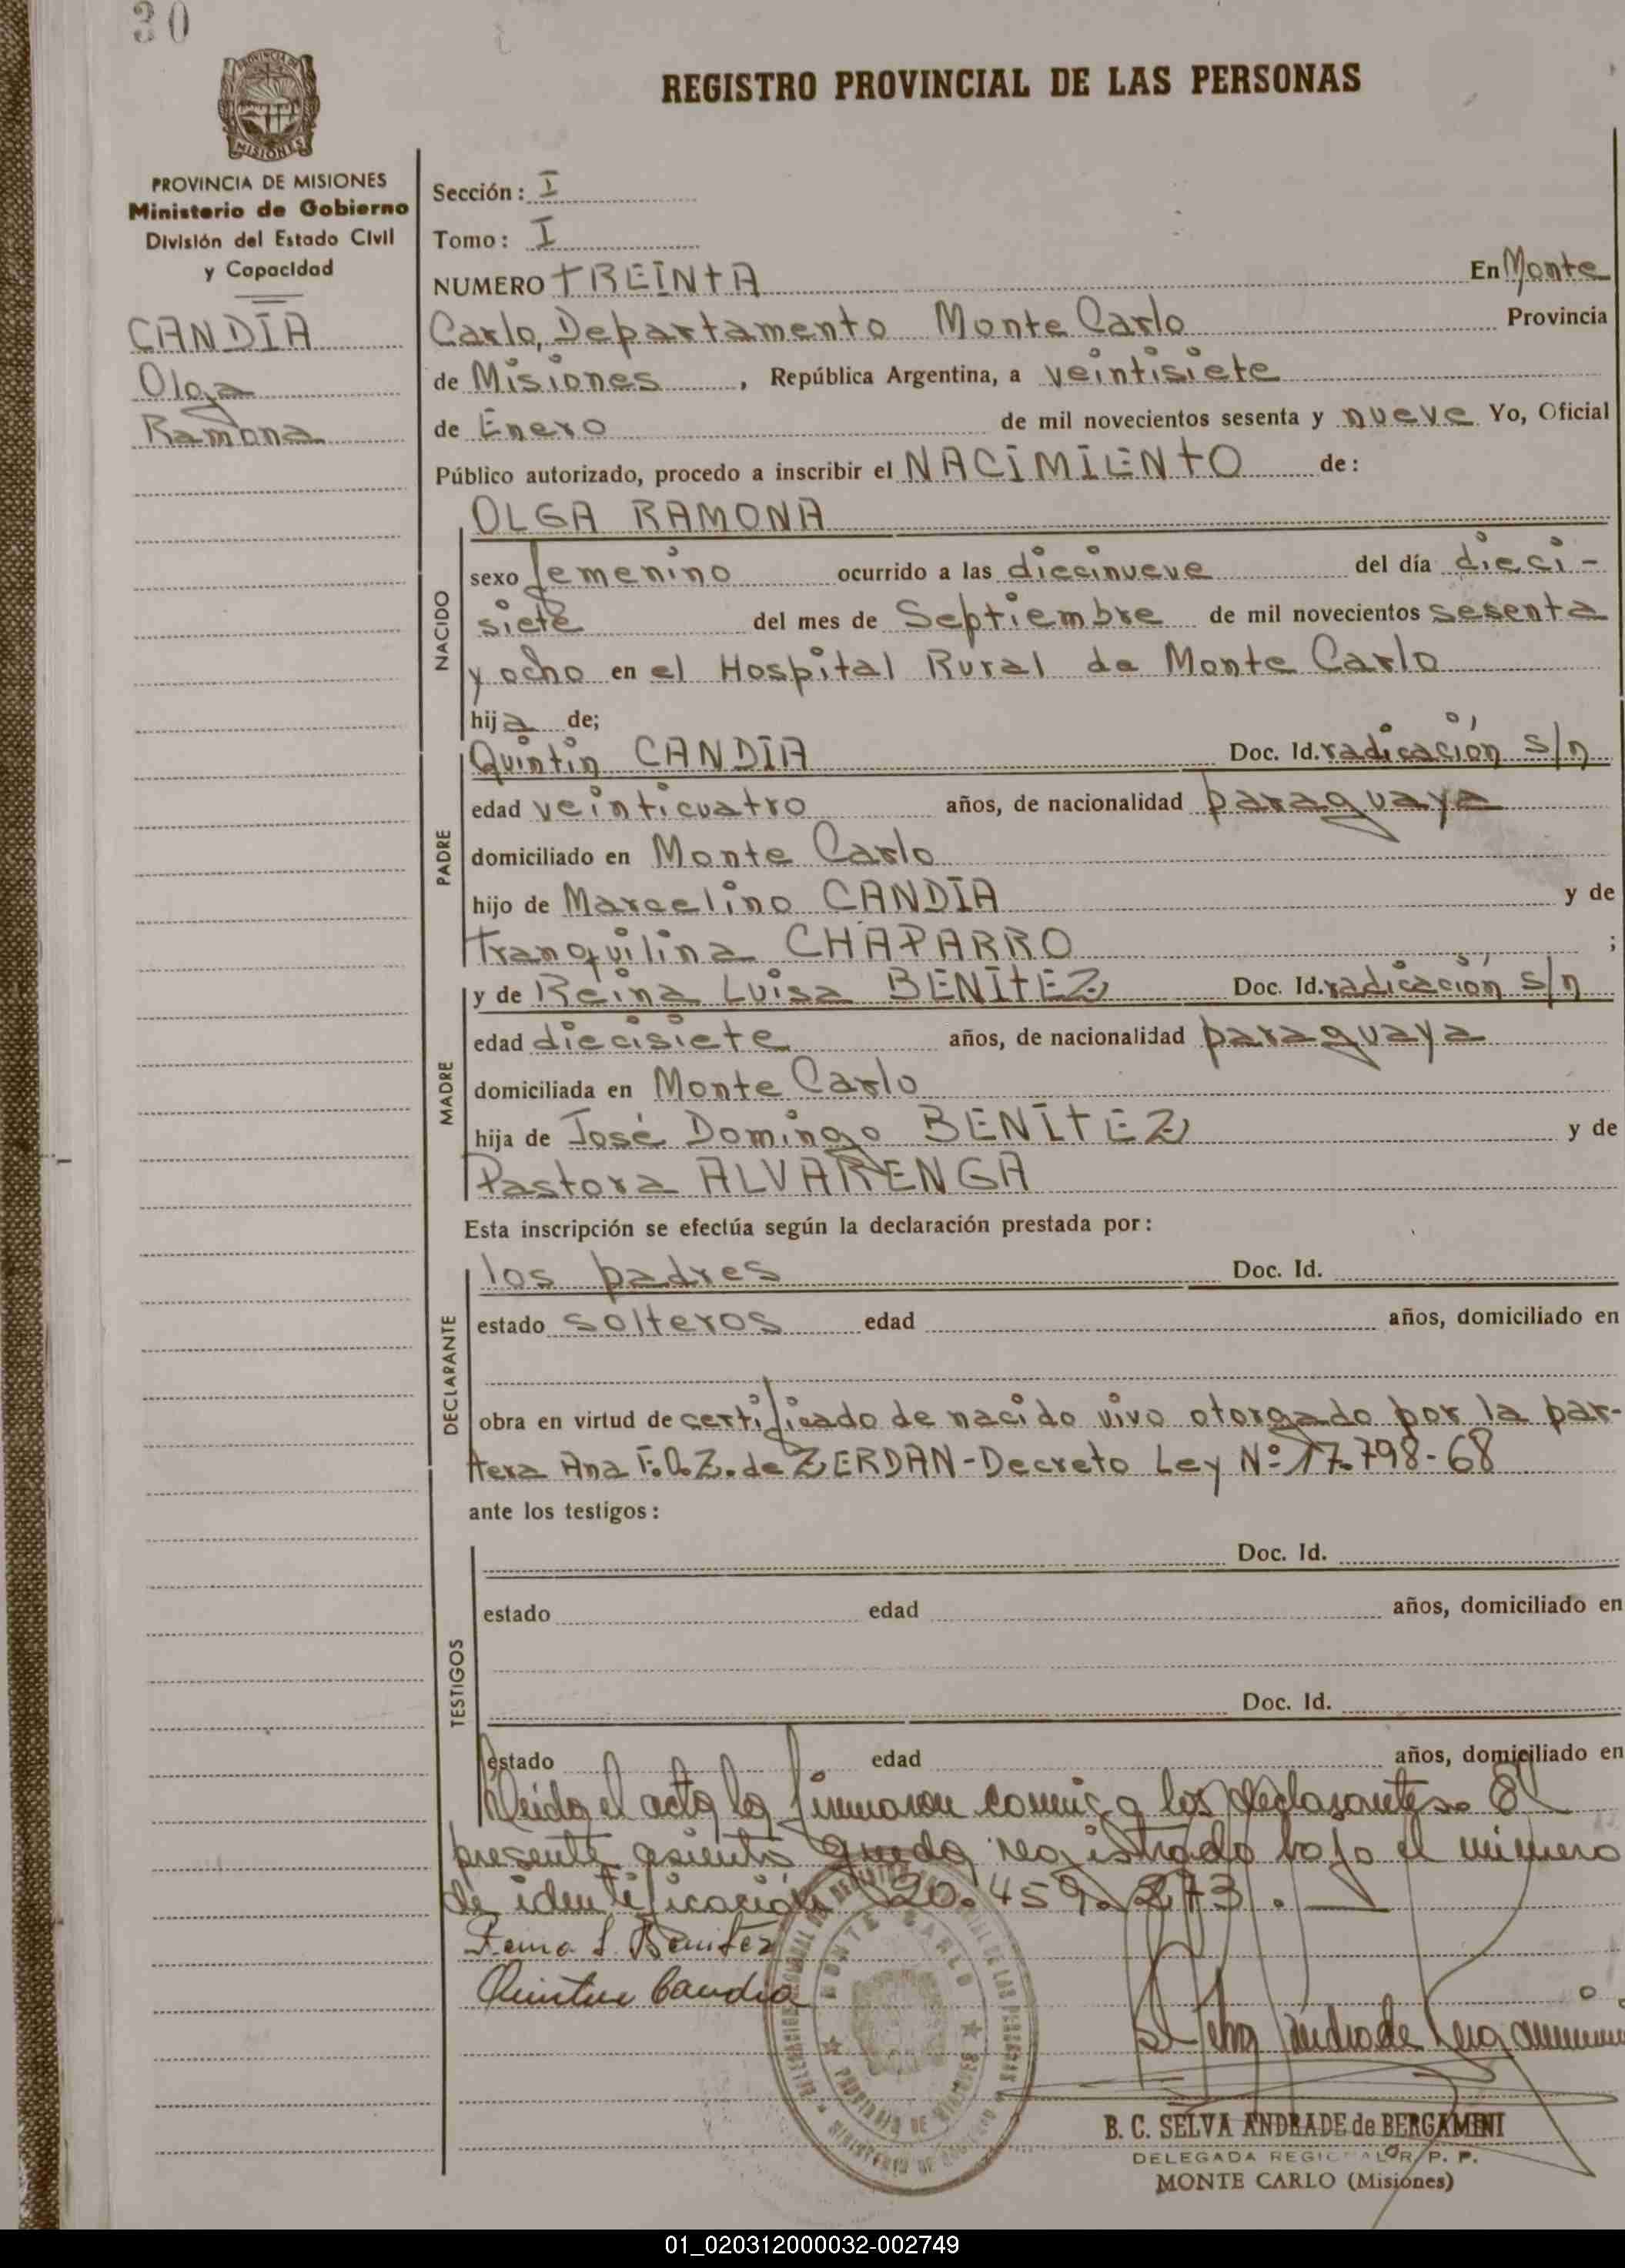 30
REGISTRO PROVINCIAL DE LAS PERSONAS
MISIONES
PROVINCIA DE MISIONES
Ministerio de Gobierno
División del Estado Civil
y Capacidad
CANDIA
Olga
Ramona
Sección: I
Tomo: I
NUMERO TREINTA En Monte
Carlo, Departamento Monte Carlo Provincia
de Misiones, República Argentina, a veintisiete
de Enero de mil novecientos sesenta y nueve Yo, Oficial
Público autorizado, procedo a inscribir el NACIMIENTO de:
NACIDO
OLGA RAMONA
sexo femenino ocurrido a las diecinueve del día dieci-
siete del mes de Septiembre de mil novecientos sesenta
y ocho en el Hospital Rural de Monte Carlo
hija de;
PADRE
Quintin CANDIA Doc. Id. radicación s/n
edad veinticuatro años, de nacionalidad paraguaya
domiciliado en Monte Carlo
hijo de Marcelino CANDIA y de
Tranquilina CHAPARRO ;
MADRE
y de Reina Luisa BENITEZ Doc. Id. radicación s/n
edad diecisiete años, de nacionalidad paraguaya
domiciliada en Monte Carlo
hija de José Domingo BENITEZ y de
Pastora ALVARENGA
Esta inscripción se efectúa según la declaración prestada por:
DECLARANTE
los padres Doc. Id.
estado solteros edad años, domiciliado en
obra en virtud de certificado de nacido vivo otorgado por la par-
tera Ana F.O.Z. de ZERDAN - Decreto Ley Nº 17.798-68
ante los testigos:
TESTIGOS
Doc. Id.
estado edad años, domiciliado en
Doc. Id.
estado edad años, domiciliado en
Leída el acta la firmaron conmigo los declarantes. El
presente asiento queda registrado bajo el número
de identificación 20.459.273.
Reina L. Benitez
Quintin Candia
MONTE CARLO
PROVINCIA DE MISIONES
MINISTERIO DE GOBIERNO
B. C. SELVA ANDRADE de BERGAMINI
DELEGADA R. P. P.
MONTE CARLO (Misiones)
01_020312000032-002749